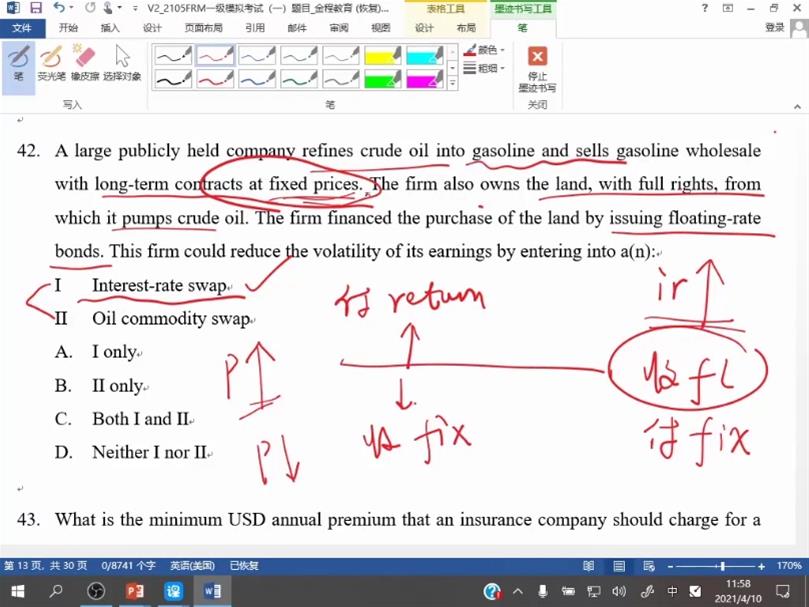 V2_2105FRM一级模拟考试（一）题目_金程教育 (恢复)...
表格工具
墨迹书写工具
文件 开始 插入 设计 页面布局 引用 邮件 审阅 视图 设计 布局 笔 登录
笔 荧光笔 橡皮擦 选择对象
颜色
粗细
停止
墨迹书写
写入 笔 关闭
42. A large publicly held company refines crude oil into gasoline and sells gasoline wholesale
with long-term contracts at fixed prices. The firm also owns the land, with full rights, from
which it pumps crude oil. The firm financed the purchase of the land by issuing floating-rate
bonds. This firm could reduce the volatility of its earnings by entering into a(n):
I Interest-rate swap
II Oil commodity swap
A. I only
B. II only
C. Both I and II
D. Neither I nor II
付 return
收 fix
P
P
ir
收 fl
付 fix
43. What is the minimum USD annual premium that an insurance company should charge for a
第 13 页，共 30 页 0/8741 个字 英语(美国) 已恢复 170%
中
11:58
2021/4/10